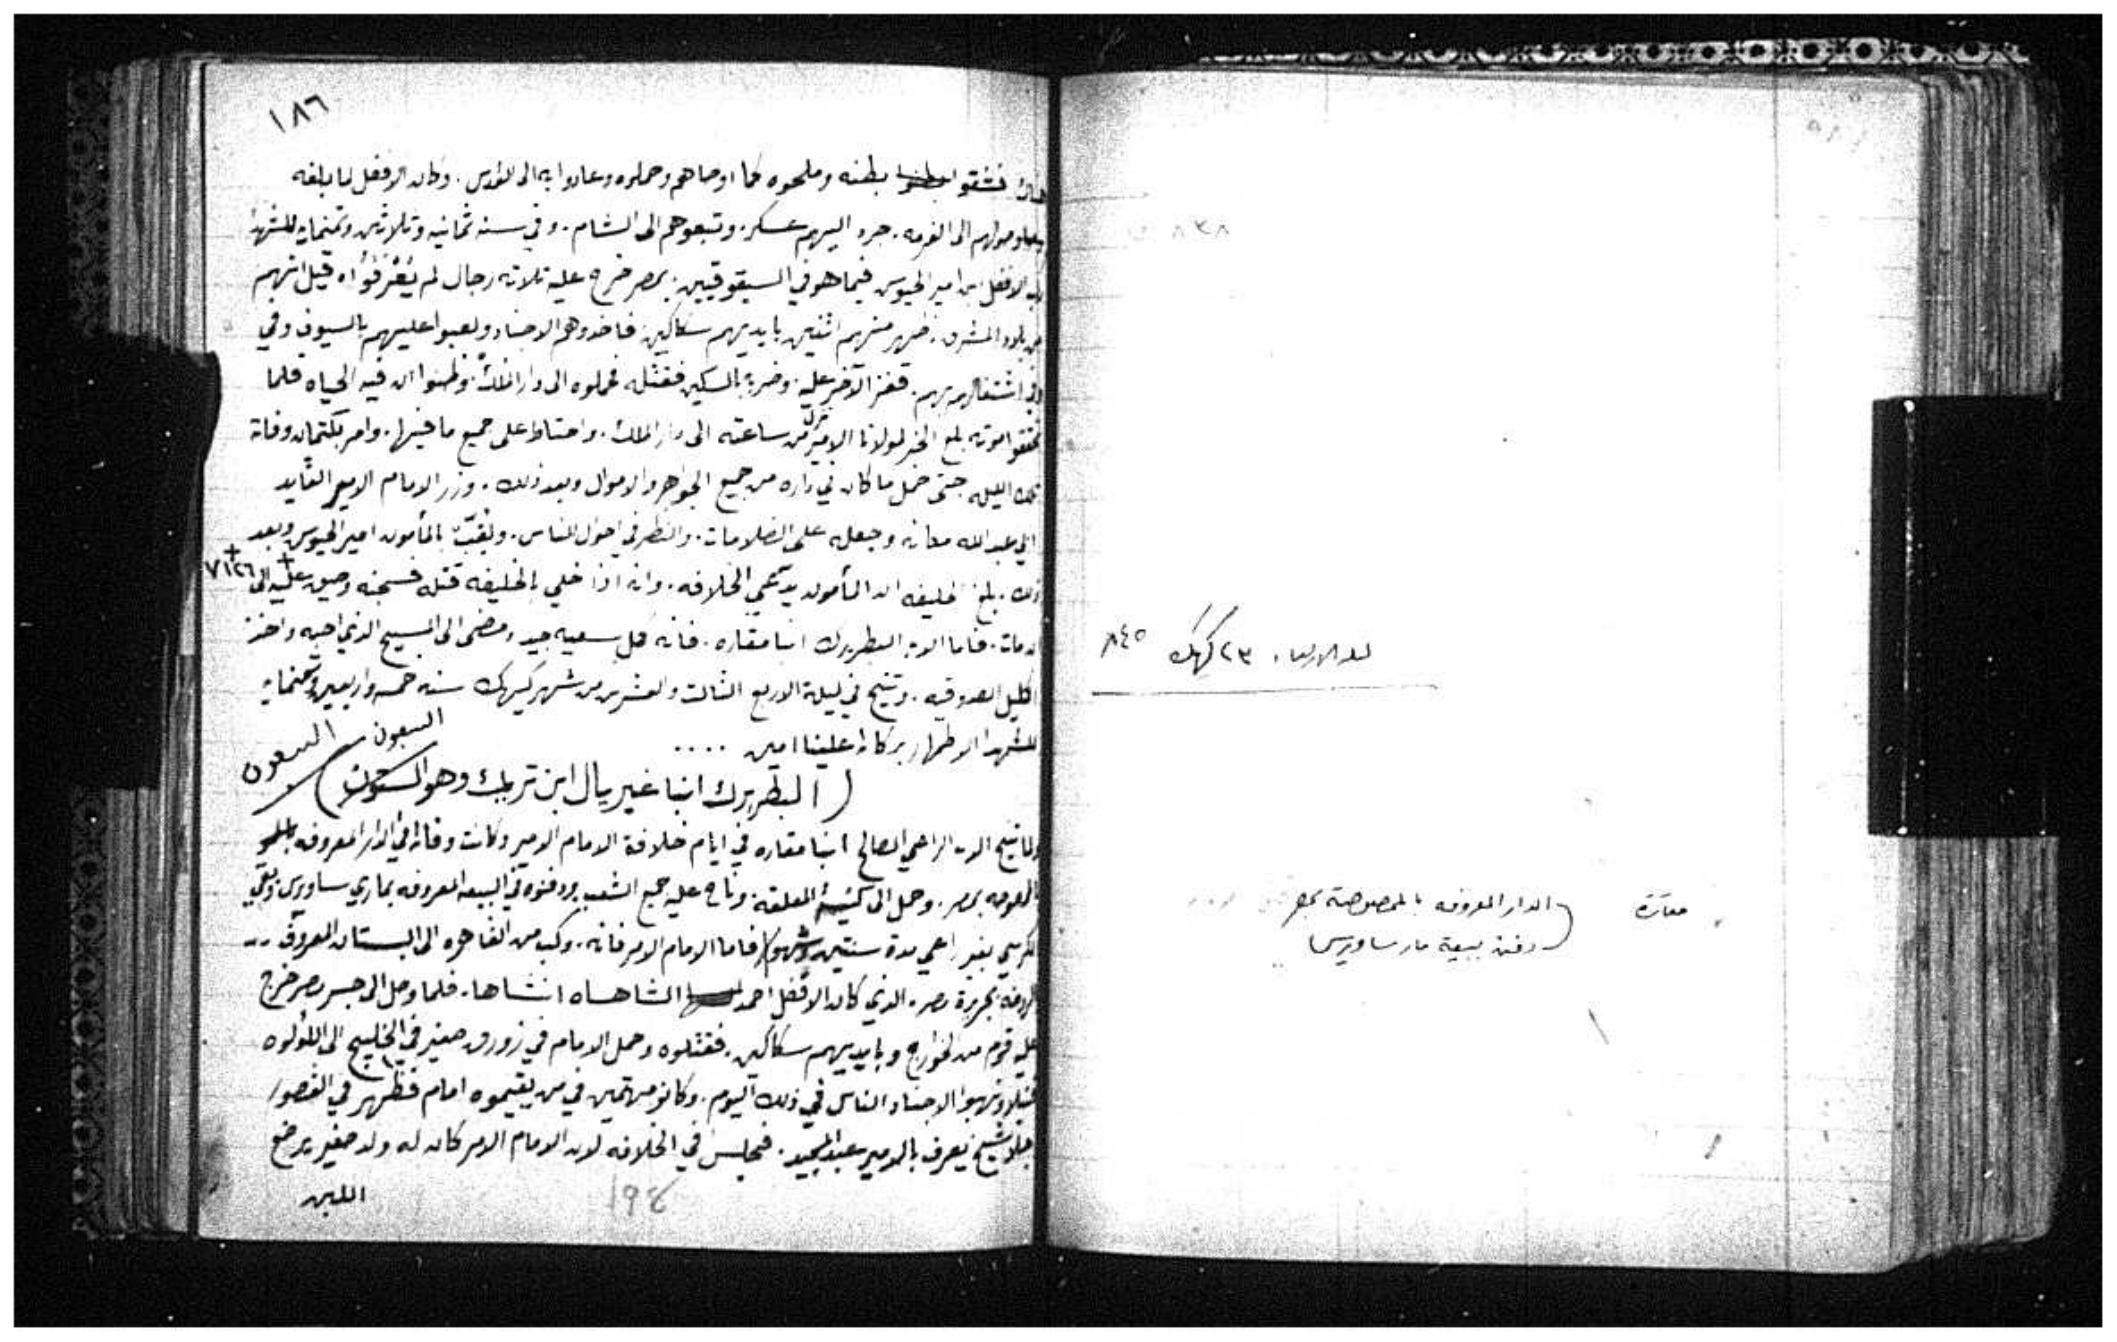 ١٨٦
فشقوا بطنه وملحوه كما اوصاهم وحملوه وعادوا به الى القدس . وكان الافضل لما بلغه
وصولهم الى الفرمه . جرد اليهم عسكر . وتبعوهم الى الشام . وفي سنه ثمانيه وتلاتين وتمنمايه للشهدا
الافضل ابن امير الجيوش فيما هو في السيقوقيين . بمصر خرج عليه تلاته رجال لم يُعْرَفُوا اه قيل انهم
من بلاد المشرق . ظهر منهم اثنين بايديهم سكاكين . فاخدوهم الاجناد ولعبوا عليهم بالسيوف وفي
اشتغالهم بهم . قفز الآخر عليه . وضربه بالسكين فقتله فحملوه الى دار الملك . وظنوا ان فيه الحياه فلما
تحققوا موته بلغ الخبر لمولانا الامر نزل من ساعته الى دار الملك . واحتاط على جميع ما فيها . وامر بكتمان وفاته
تلك الليله حتى حمل ما كان في داره من جميع الجواهر والاموال وبعد ذلك . وزر الامام الامر القايد
ابي عبد الله مكانه وجعله على الضلامات . والنظر في احوال الناس . ولُقّب بالمأمون امير الجيوش وبعد
ذلك . بلغ الخليفه ان المأمون يدّعي الخلافه . وانه اذا خلي بالخليفه قتله فسجنه وضيق عليه الى
٧١٢٦
ان مات . فاما الاب البطريرك انبا مقاره . فانه كمل سعيه جيد ومضى الى المسيح الذي احبه واخذ
اكليل الصدوقيه . وتنيح في ليلة الاربع الثالث والعشرين من شهر كيهك سنه خمسه واربعين وتمنمايه
للشهدا الاطهار بركاته علينا امين ....
السبعون
السبعون
( البطريرك انبا غبريال ابن تريك وهو السبعون )
ولما تنيح الاب الراعي الصالح انبا مقاره في ايام خلافة الامام الامر وكانت وفاته في الدار المعروفه
بمصر . وحمل الى كنيسة المعلقة . وناح عليه جميع الشعب ودفنوه في البيعه المعروفه بماري ساورس وبقي
الكرسي بغير راعي مدة سنتين وشهور فاما الامام الامر فانه . ركب من القاهره الى البستان المعروف --
بجزيرة مصر . الذي كان الافضل احمد الشاهساه انشاها . فلما وصل الى جسر مصر خرج
عليه قوم من الخوارج وبايديهم سكاكين . فقتلوه وحمل الامام في زورق صغير في الخليج الى اللؤلوه
ونهبوا الاجناد الناس في ذلك اليوم . وكانو مهتمين في من يقيموه امام فظهر في القصور
شيخ يعرف بالامير عبد المجيد . فجلس في الخلافه لان الامام الامر كان له ولد صغير يرضع
اللبن
١٩٤
٨٣٨
ليلة الاربعاء ٢٣ كيهك ٨٤٥
مقارة
الدار المعروفه بالممصوصة بمصر
دفن ببيعة مار ساويرس